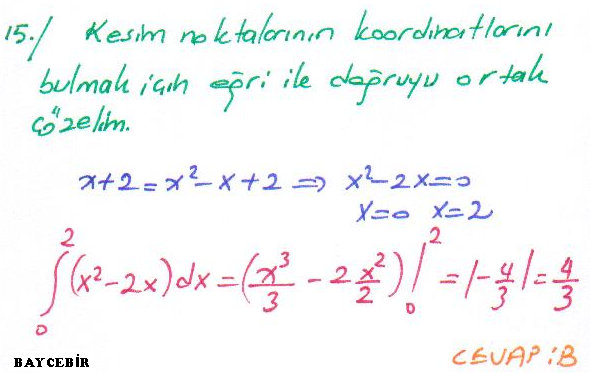 15./ Kesim noktalarının koordinatlarını
bulmak için eğri ile doğruyu ortak
çözelim.
x+2=x²-x+2 ⇒ x²-2x=0
x=0 x=2
∫₀²(x²-2x)dx=(x³/3 - 2x²/2)|₀² =|-4/3|=4/3
CEVAP:B
BAYCEBİR